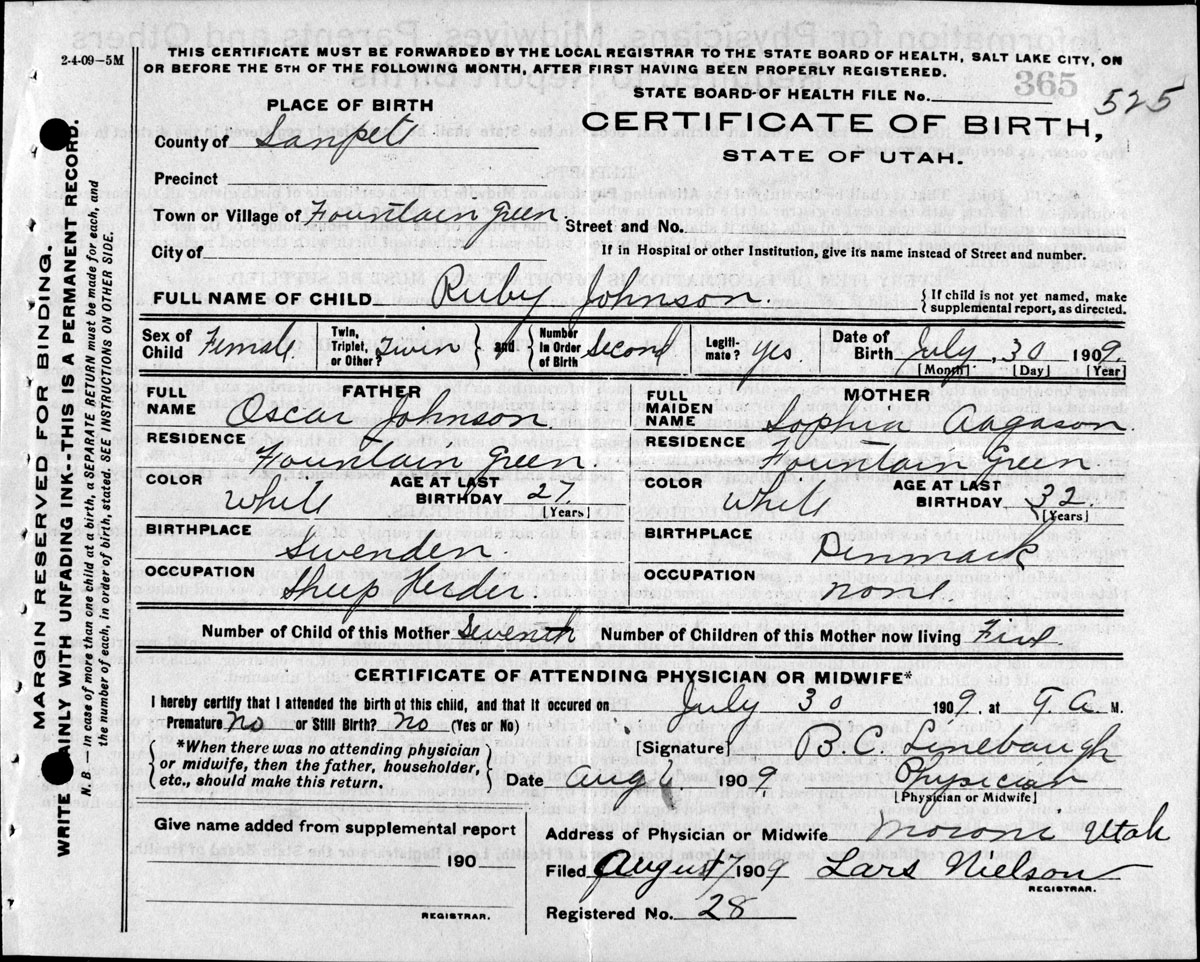 2-4-09-5M
THIS CERTIFICATE MUST BE FORWARDED BY THE LOCAL REGISTRAR TO THE STATE BOARD OF HEALTH, SALT LAKE CITY, ON
OR BEFORE THE 5TH OF THE FOLLOWING MONTH, AFTER FIRST HAVING BEEN PROPERLY REGISTERED.
365
STATE BOARD OF HEALTH FILE No. 525
PLACE OF BIRTH
CERTIFICATE OF BIRTH,
STATE OF UTAH.
County of Sanpete
Precinct
Town or Village of Fountain Green. Street and No.
City of If in Hospital or other Institution, give its name instead of Street and number.
FULL NAME OF CHILD Ruby Johnson. {If child is not yet named, make supplemental report, as directed.
Sex of Child Female. Twin, Triplet, or Other? Twin } and { Number in Order of Birth Second Legitimate? Yes. Date of Birth July, 30 1909.
[Month] [Day] [Year]
FATHER MOTHER
FULL NAME Oscar Johnson. FULL MAIDEN NAME Sophia Aagason.
RESIDENCE Fountain Green. RESIDENCE Fountain Green.
COLOR White AGE AT LAST BIRTHDAY 27 [Years] COLOR White AGE AT LAST BIRTHDAY 32 [Years]
BIRTHPLACE Swenden. BIRTHPLACE Denmark
OCCUPATION Sheep Herder OCCUPATION none.
Number of Child of this Mother Seventh Number of Children of this Mother now living Five
CERTIFICATE OF ATTENDING PHYSICIAN OR MIDWIFE*
I hereby certify that I attended the birth of this child, and that it occured on July 30 1909. at A. M.
Premature no or Still Birth? no (Yes or No)
{*When there was no attending physician or midwife, then the father, householder, etc., should make this return.}
[Signature] B. C. Linebaugh
Date Aug 6 1909. Physician
[Physician or Midwife]
Give name added from supplemental report
190
REGISTRAR.
Address of Physician or Midwife Moroni Utah
Filed August 7 1909 Lars Nielson
REGISTRAR.
Registered No. 28
MARGIN RESERVED FOR BINDING.
WRITE PLAINLY WITH UNFADING INK--THIS IS A PERMANENT RECORD.
N. B. — In case of more than one child at a birth, a SEPARATE RETURN must be made for each, and
the number of each, in order of birth, stated. SEE INSTRUCTIONS ON OTHER SIDE.